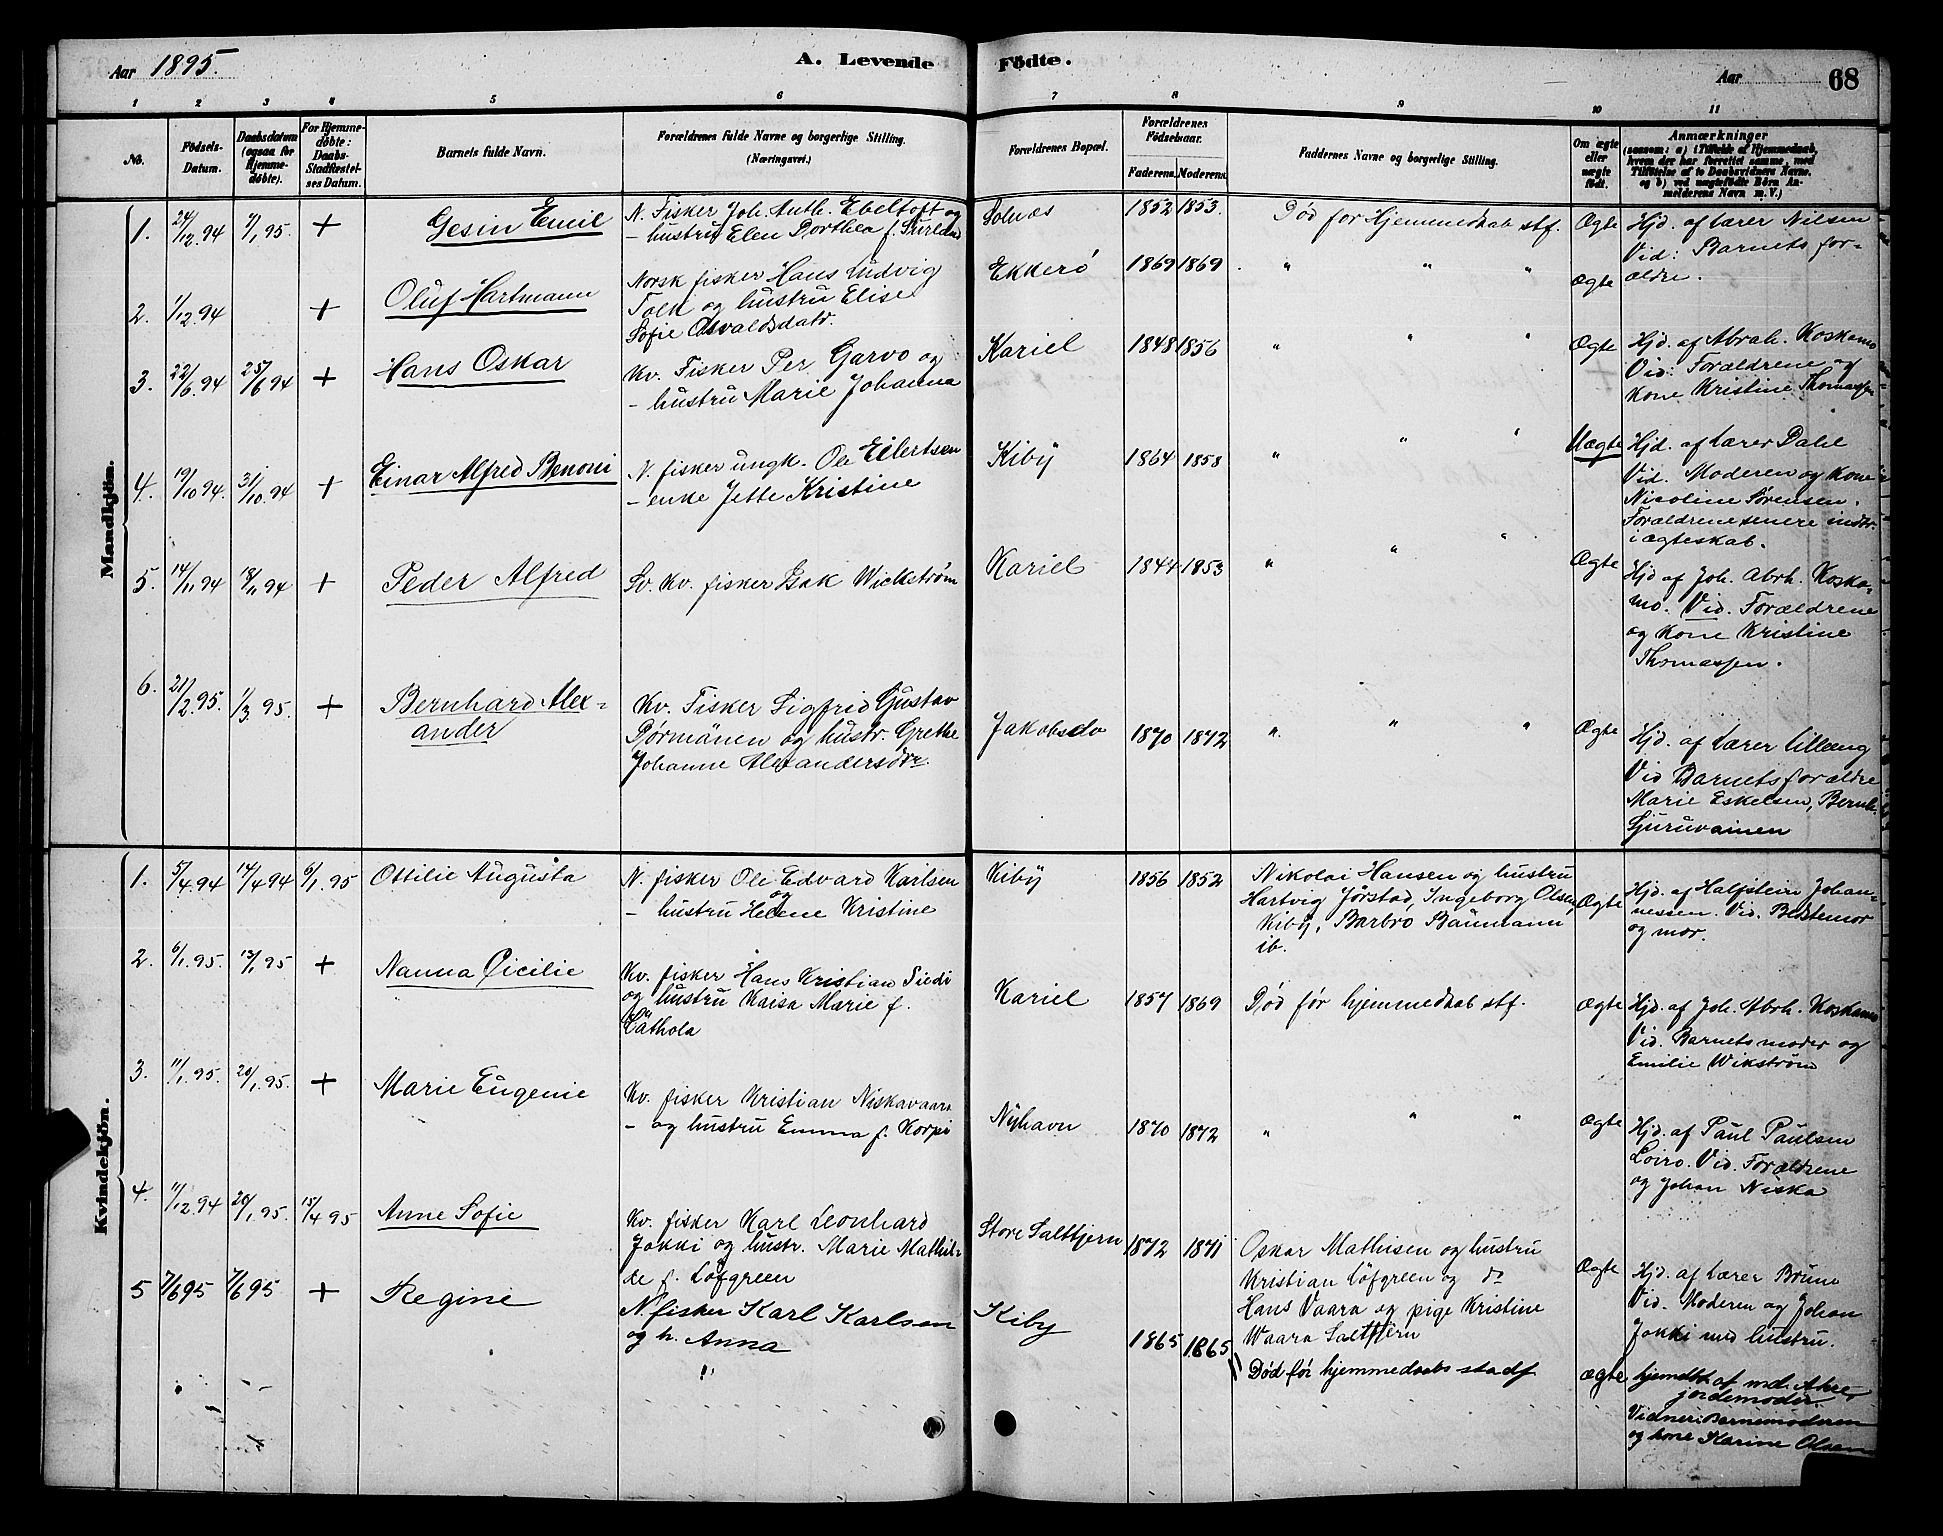 Aar 1895.
A. Levende Fødte.
Aar 68
1 2 3 4 5 6 7 8 9 10 11
No.
Fødsels-
Datum.
Daabsdatum
(ogsaa for
Hjemme-
døbte).
For Hjemme-
døbte:
Daabs-
Stadfæstel-
ses Datum.
Barnets fulde Navn.
Forældrenes fulde Navne og borgerlige Stilling.
(Næringsvei.)
Forældrenes Bopæl.
Forældrenes
Fødselsaar.
Faderens. Moderens.
Faddernes Navne og borgerlige Stilling.
Om ægte
eller
uægte
født.
Anmærkninger
(saasom: a) i Tilfælde af Hjemmedaab,
hvem der har forrettet samme, med
Tilføielse af to Daabsvidners Navne,
og b) ved uægtefødte Børn An-
melderens Navn m. V.)
Mandkjøn.
1. 24/12 94 7/1 95. + Gesin Emil
N. Fisker Joh. Anth. Ebeltoft og
- hustru Elen Dorthea f.
1852 1853. Død før Hjemmedaab stf. Ægte
Hjd. af Lærer Nilsen
Vid: Barnets for-
ældre.
2. 1/12 94 + Oluf Hartmann
Norsk fisker Hans Ludvig
Falk og hustru Elise
Sofie Osvaldsdatr.
Ekkerö 1869 1869 " " " Ægte
3. 22/6 94 25/6 94 + Hans Oskar
Kv. Fisker Per Garvo og
- hustru Marie Johanna
Kariel 1848 1856 " " " Ægte
Hjd. af Abrah. Koskamo
Vid: Forældrene og
Kone Kristine Thomassen
4. 19/10 94. 31/10 94 + Einar Alfred Benoni
N. fisker ungk. Ole Eilertsen
- enke Jette Kristine
Kiby 1864 1858 " " " Uægte
Hjd. af Lærer Dahl
Vid. Moderen og Kone
Nicoline Sørensen.
Forældrene senere indtr.
i ægteskab.
5. 14/11 94 18/11 94 + Peder Alfred
Sv. Kv. fisker Isak Wickstrøm
Kariel 1844 1853 " " " Ægte
Hjd af Joh. Abrh. Koska-
mo. Vid. Forældrene
og Kone Kristine
Thomassen.
6. 21/2 95. 1/3 95. + Bernhard Alex-
ander
Kv. Fisker Sigfrid Gustav
Pørmänen og hustr. Grethe
Johanne Alexandersdtr.
Jakobselv 1870 1872 " " " Ægte
Hjd. af Lærer Lilleeng
Vid Barnets forældre
Marie Eskelsen, Bernh.
Sjuruvainen
Kvindekjøn.
1. 5/4 94 14/4 94 6/1 95 Ottilie Augusta
N. fisker Ole Edvard Karlsen
og
- hustru Helene Kristine
Kiby 1856 1852
Nikolai Hansen og hustru
Hartvig Jørstad, Ingeborg Olsen,
Kiby, Barbro Baumann
ib.
Ægte
Hjd. af Halfstein Johan-
nessen. Vid. Bedstemor
og mor.
2. 6/1 95. 13/1 95 + Nanna Cicilie
Kv. fisker Hans Kristian Siedi
og hustru Kaisa Marie f.
Läthola
Kariel 1857 1869 Død før hjemmedaab stf. Ægte
Hjd. af Joh. Abrh. Koskamo
Vid. Barnets moder og
Emilie Wikstrøm
3. 11/1 95. 20/1 95. + Marie Eugenie
Kv. fisker Kristian Niskavaara
- og hustru Emma f. Korpi
Nyhavn 1870 1872 " " " Ægte
Hjd. af Paul Paulsen
Loiro. Vid. Forældrene
og Johan Niska
4. 11/12 94 20/1 95. 15/4 95 Anne Sofie
Kv. fisker Karl Leonhard
Jokki og hustr. Marie Mathil-
de f. Löfgreen
Store Saltfjern 1872 1871
Oskar Mathisen og hustru
Kristian Löfgreen og do
Hans Vaara og pige Kristine
Waara Saltfjern
Ægte
Hjd. af Lærer Brune
Vid. Moderen og Johan
Jokki med hustru.
5 7/6 95 7/6 95 + Regine
N. fisker Karl Karlsen
og h. Anna
Kiby 1865 1865
Død før hjemmedaabs stadf
ægte
hjemdbt af
jordemoder
Vidner: Barnemoderen
og kone Karine Olsen